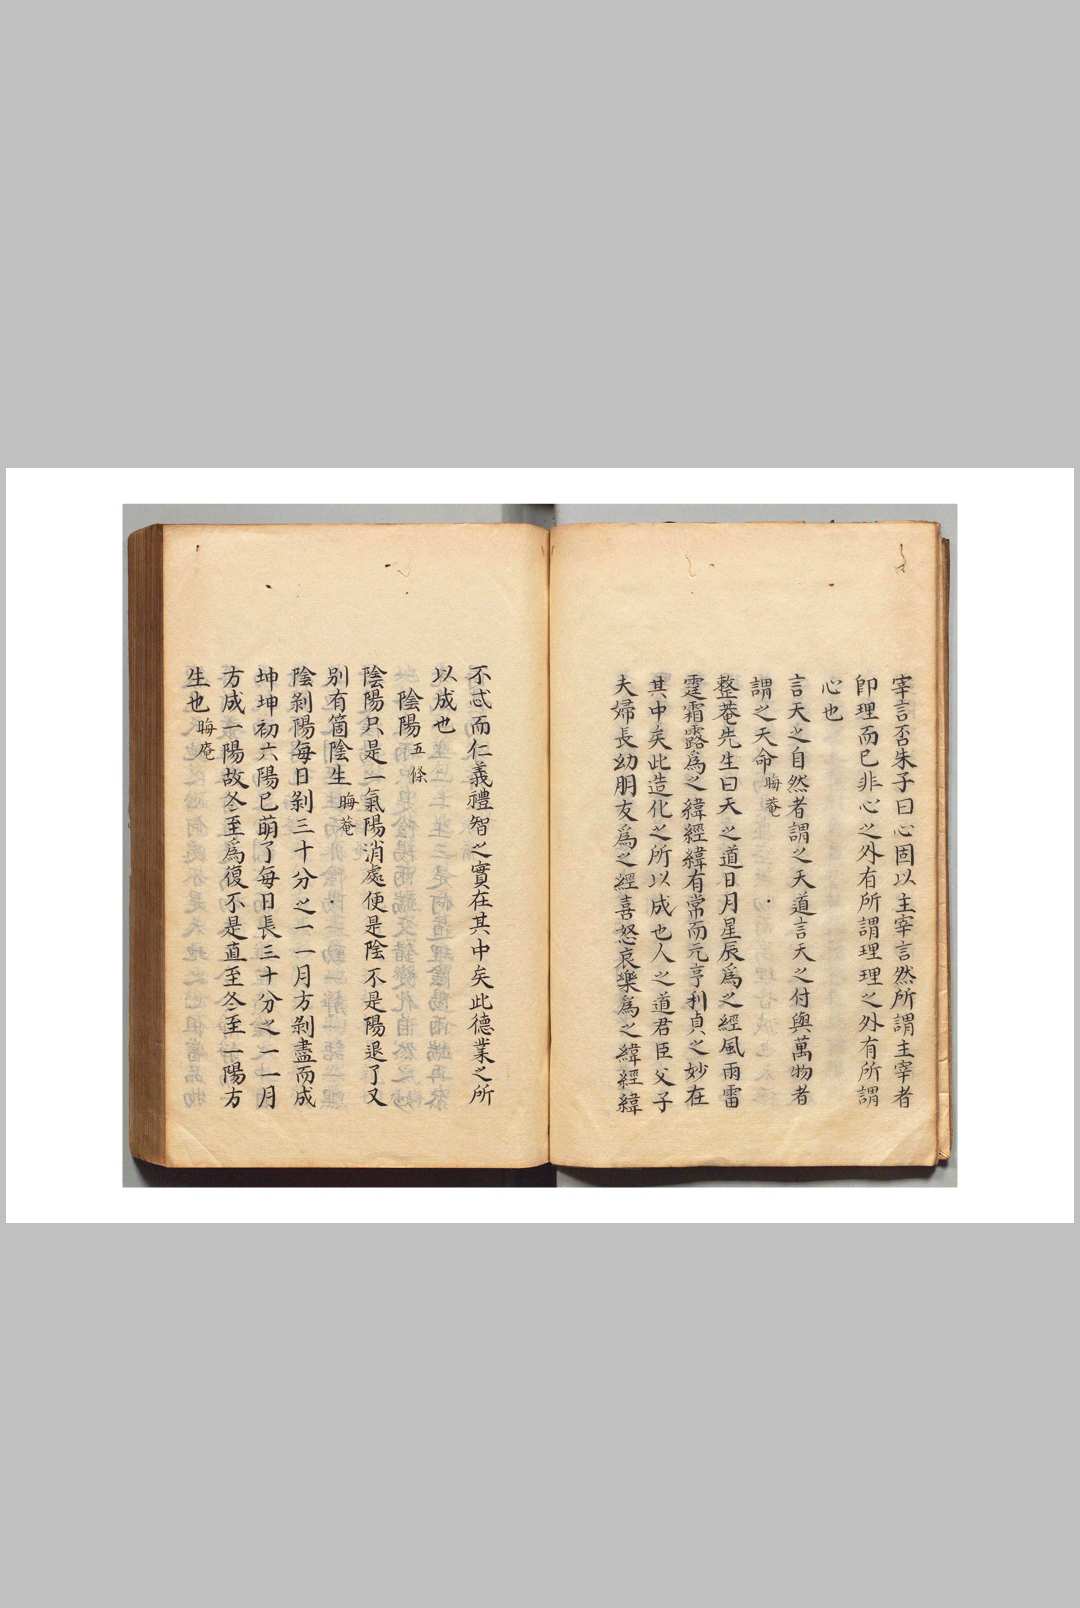 宰言否朱子曰心固以主宰言然所謂主宰者
卽理而已非心之外有所謂理理之外有所謂
心也
言天之自然者謂之天道言天之付與萬物者
謂之天命晦菴
整菴先生曰天之道日月星辰爲之經風雨雷
霆霜露爲之緯經緯有常而元亨利貞之妙在
其中矣此造化之所以成也人之道君臣父子
夫婦長幼朋友爲之經喜怒哀樂爲之緯經緯
不忒而仁義禮智之實在其中矣此德業之所
以成也
陰陽五條
陰陽只是一氣陽消處便是陰不是陽退了又
別有箇陰生晦菴
陰剝陽每日剝三十分之一一月方剝盡而成
坤坤初六陽已萌了每日長三十分之一一月
方成一陽故冬至爲復不是直至冬至一陽方
生也晦庵